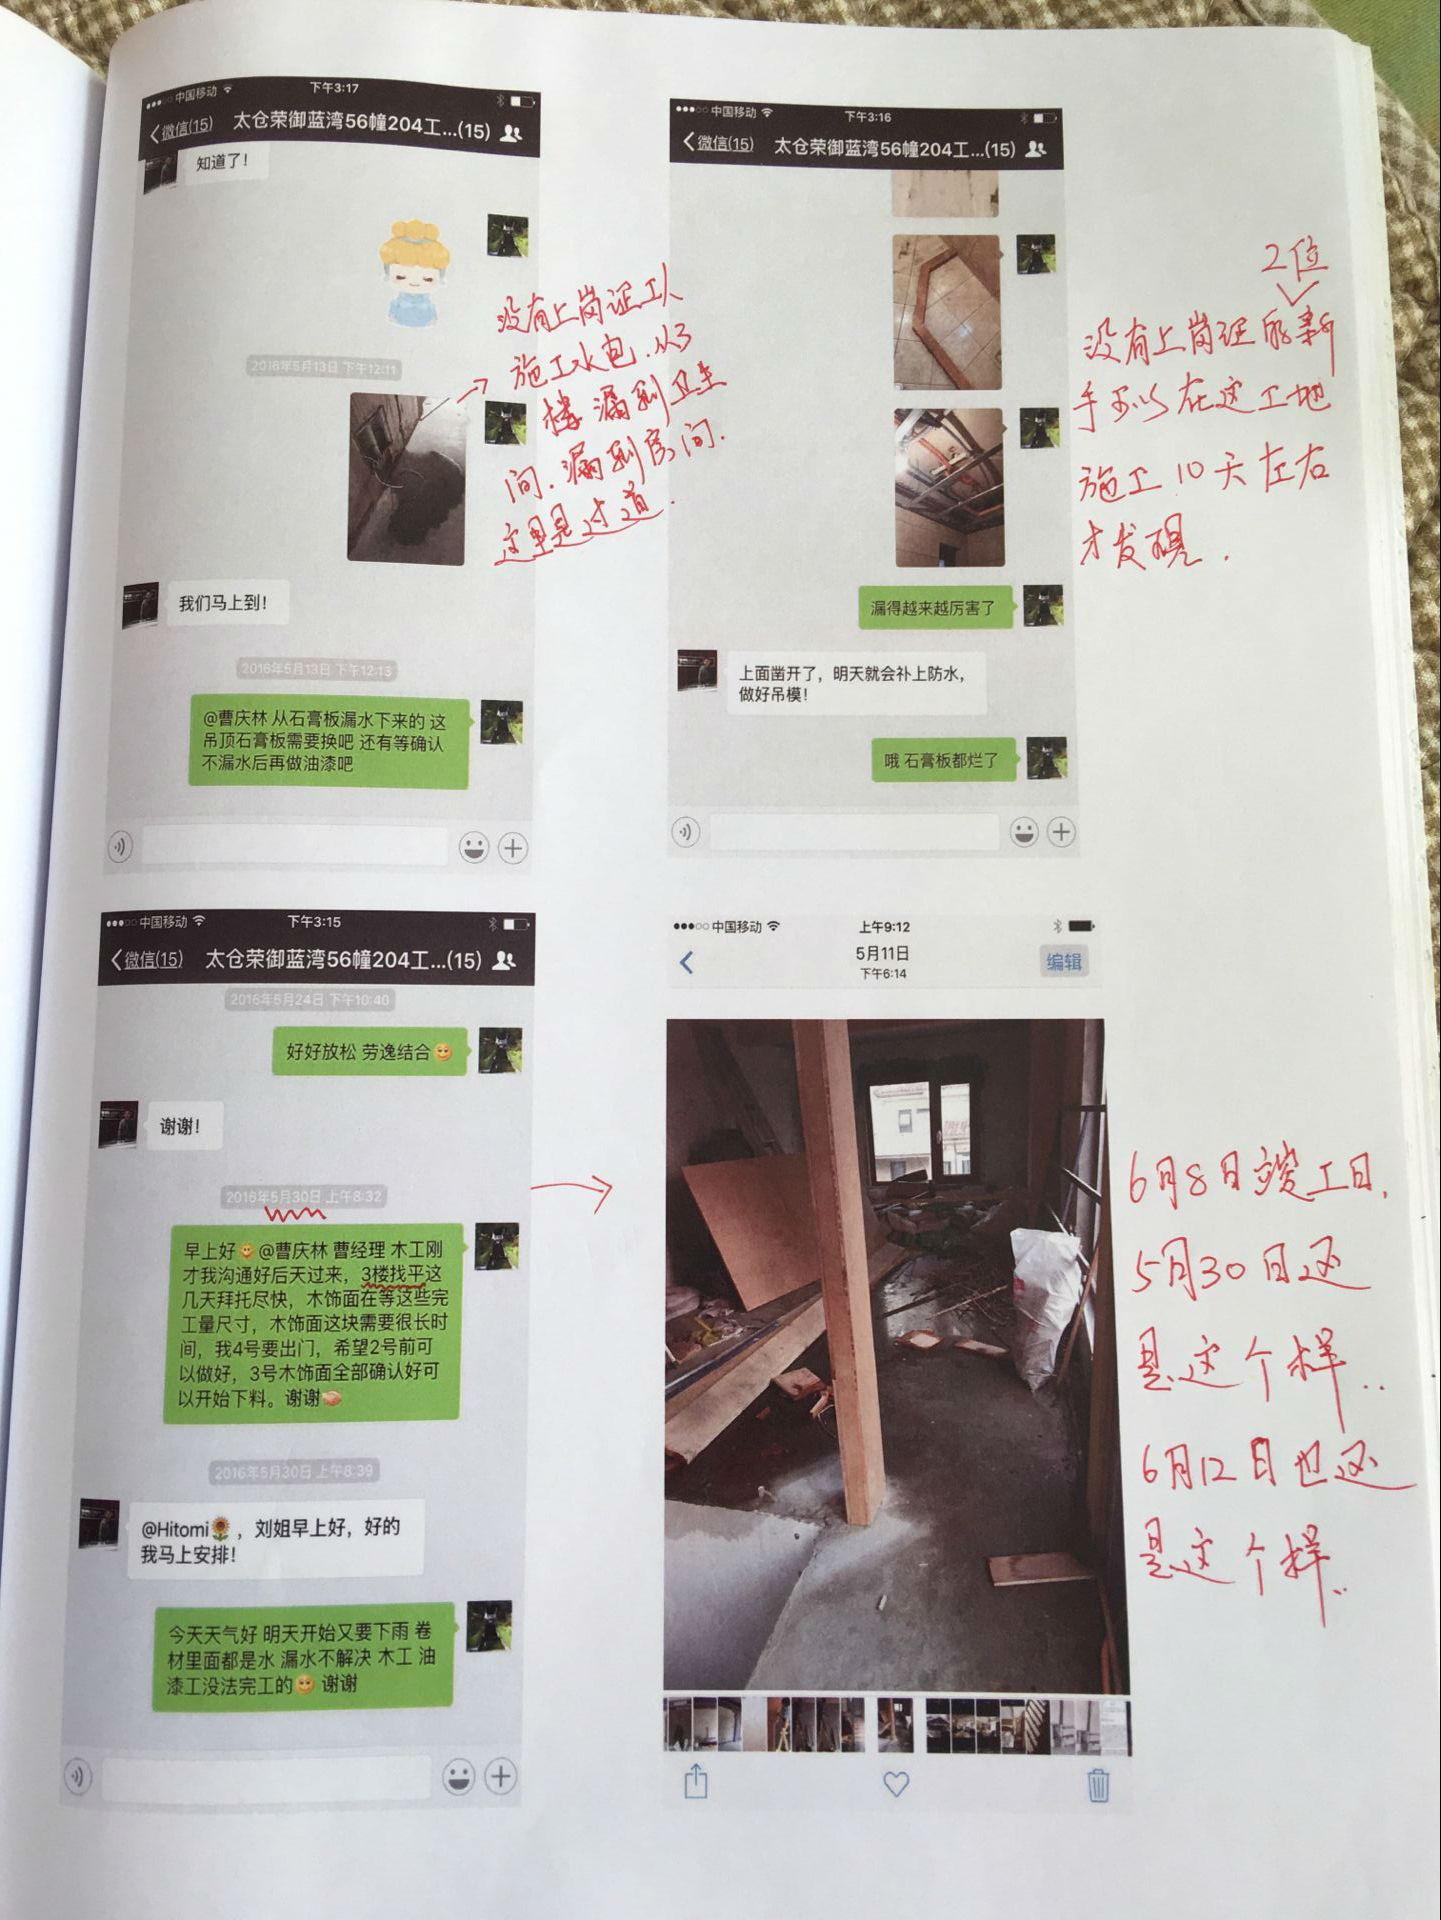 中国移动
下午3:17
微信(15)
太仓荣御蓝湾56幢204工...(15)
知道了！
2016年5月13日 下午12:11
没有上岗证工人
施工水包.从3
楼漏到卫生
间.漏到房间.
这里是过道.
我们马上到！
2016年5月13日 下午12:13
@曹庆林 从石膏板漏水下来的 这
吊顶石膏板需要换吧 还有等确认
不漏水后再做油漆吧
中国移动
下午3:16
微信(15)
太仓荣御蓝湾56幢204工...(15)
2位
没有上岗证的新
手可以在这工地
施工10天左右
才发现.
漏得越来越厉害了
上面凿开了，明天就会补上防水，
做好吊模！
哦 石膏板都烂了
中国移动
下午3:15
微信(15)
太仓荣御蓝湾56幢204工...(15)
2016年5月24日 下午10:40
好好放松 劳逸结合
谢谢！
2016年5月30日 上午8:32
早上好 @曹庆林 曹经理 木工刚
才我沟通好后天过来，3楼找平这
几天拜托尽快，木饰面在等这些完
工量尺寸，木饰面这块需要很长时
间，我4号要出门，希望2号前可
以做好，3号木饰面全部确认好可
以开始下料。谢谢
2016年5月30日 上午8:39
@Hitomi ，刘姐早上好，好的
我马上安排！
今天天气好 明天开始又要下雨 卷
材里面都是水 漏水不解决 木工 油
漆工没法完工的 谢谢
中国移动
上午9:12
5月11日
下午6:14
编辑
6月8日竣工日,
5月30日还
是这个样..
6月12日也还
是这个样..